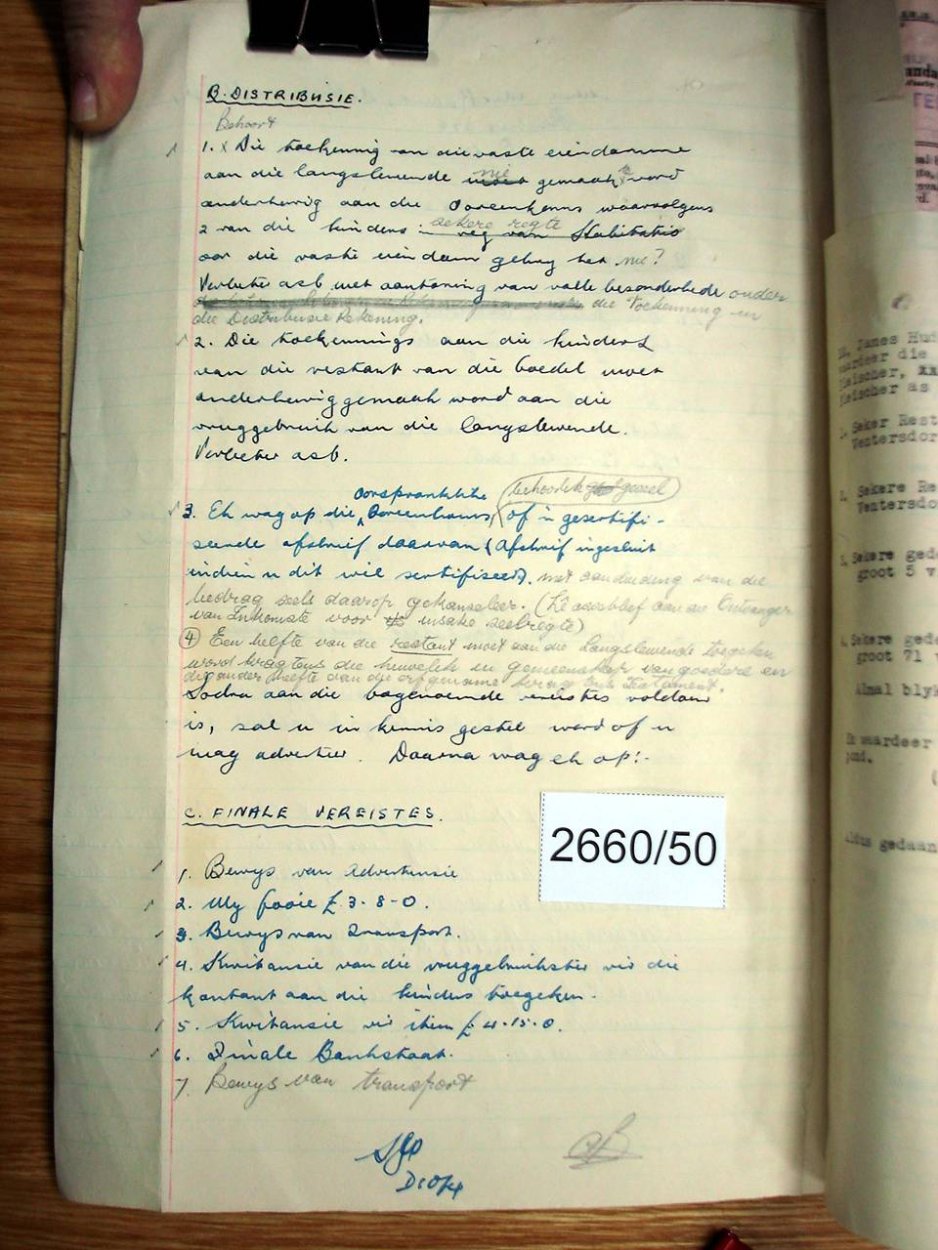 B. DISTRIBUSIE.
Behoort
1. x Die toekenning van die vaste eiendomme
aan die langslewende moet nie gemaak te word
onderhewig aan die ooreenkoms waarvolgens
2 van die kinders sekere regte reg van Habitatio
oor die vaste eiendom gehuy het nie?
Verbeter asb met aantoning van volle besonderhede onder
die Toekenning en
die Distribusie Rekening.
2. Die toekennings aan die kinders
van die restant van die boedel moet
onderhewig gemaak word aan die
vruggebruik van die langslewende.
Verbeter asb.
oorspronklike (behoorlik geseel)
3. Ek wag op die ooreenkoms, of 'n gesertifi-
seerde afskrif daarvan (afskrif ingesluit
indien u dit wil sertifiseer). met aanduiding van die
bedrag seëls daarop gekanseleer. (Lê asseblief aan die Ontvanger
van Inkomste voor insake seëlregte)
4 Een helfte van die restant moet aan die langslewende toegeken
word kragtens die huwelik in gemeenskap van goedere en
die ander helfte aan die erfgename kragtens Testament.
Sodra aan die bogenoemde vereistes voldoen
is, sal u in kennis gestel word of u
mag adverteer. Daarna wag ek op:-
C. FINALE VEREISTES.
1. Bewys van Advertensie
2. My fooie £ 3-8-0.
3. Bewys van Transport.
4. Kwitansie van die vruggebruikster vir die
kontant aan die kinders toegeken.
5. Kwitansie vir item £ 4-15-0.
6. Finale Bankstaat.
7. Bewys van transport
2660/50
James
waardeer die
Seker Rest
Ventersdor
Sekere Re
Ventersdo
Sekere gede
groot 5 v
Sekere gede
groot 71 v
Almal blyk
Ek waardeer
pond.
Aldus gedaan